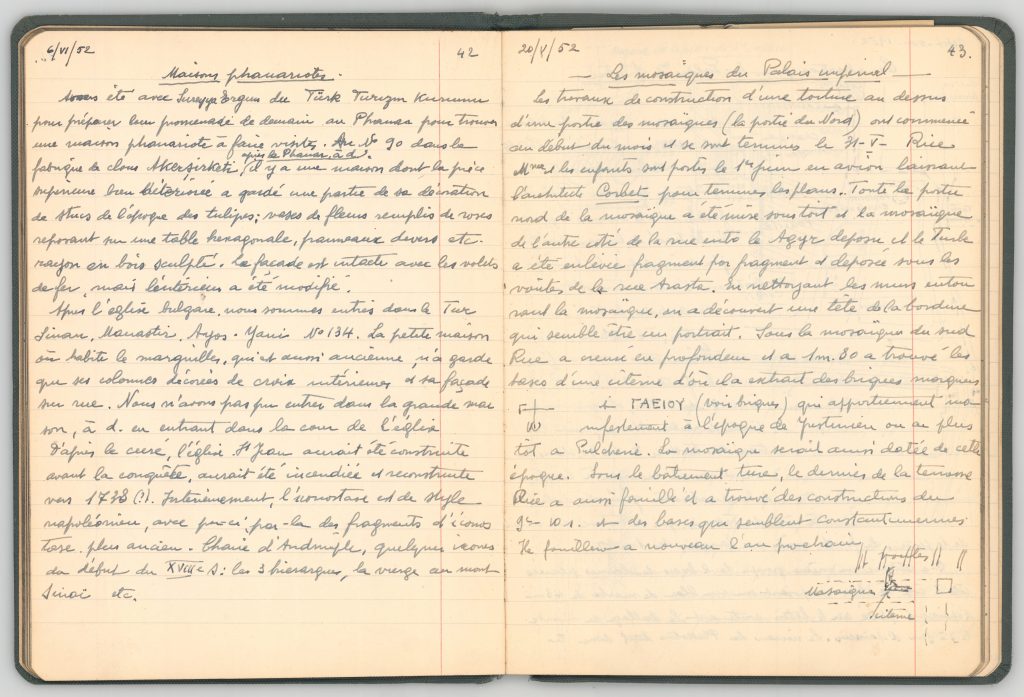 6/VI/52
42
Maisons phanariotes.
été avec Sureyya Ergun du Türk Turizm Kurumu
pour préparer leur promenade de demain au Phanar pour trouver
une maison phanariote à faire visiter. Au No 90 dans la
après le Phanar, à d.
fabrique de clous Akersirketi, il y a une maison dont la pièce
supérieure bien détériorée a gardé une partie de sa décoration
de stucs de l'époque des tulipes; vases de fleurs remplis de roses
reposant sur une table hexagonale, panneaux divers etc.
rayon en bois sculpté. La façade est intacte avec les volets
de fer, mais l'intérieur a été modifié.
Après l'église bulgare, nous sommes entrés dans le Tur
Sinan, Manastir, Ayos-Yani No 134. La petite maison
où habite le marguiller, qui est aussi ancienne n'a gardé
que ses colonnes décorées de croix intérieures et sa façade
sur rue. Nous n'avons pas pu entrer dans la grande mai
son, à d. en entrant dans la cour de l'église
D'après le curé, l'église St Jean aurait été construite
avant la conquête, aurait été incendiée et reconstruite
vers 1738 (?). Intérieurement, l'iconostase est de style
napoléonien, avec par-ci, par-la des fragments d'iconos
tase plus ancien. Chaire d'Andrinople, quelques icones
du début du XVIIIe s: les 3 hierarques, la vierge au mont
Sinaï etc.
20/V/52
43.
— Les mosaïques du Palais impérial —
Les travaux de construction d'une toiture au dessus
d'une partie des mosaïques (la partie du Nord) ont commencé
au début du mois et se sont terminés le 31-V- Rice
Mme et les enfants sont partis le 1er juin en avion laissant
l'architecte Corbet pour terminer les plans. Toute la partie
nord de la mosaïque a été mise sous toit et la mosaïque
de l'autre côté de la rue entre le Ağyr deposu et le Turbe
a été enlevée fragment par fragment et deposée sous les
voutes de la rue Arasta. En nettoyant les murs entou
rant la mosaïque, on a découvert une tête de la bordure
qui semble être un portrait. Sous la mosaïque du sud
Rice a creusé en profondeur et a 1m.80 a trouvé les
bases d'une citerne d'où il a extrait des briques marquées
ΓΑΕΙΟΥ (voir briques) qui appartiennent ma
nifestement à l'époque de Justinien ou au plus
tôt a Pulcherie. La mosaïque serait ainsi datée de cette
époque. Sous le bâtiment turc, le dernier de la terrasse
Rice a aussi fouillé et a trouvé des constructions du
9e-10 s. et des bases qui semblent constantiniennes.
Ils fouillera a nouveau l'an prochain
Mosaique
citerne